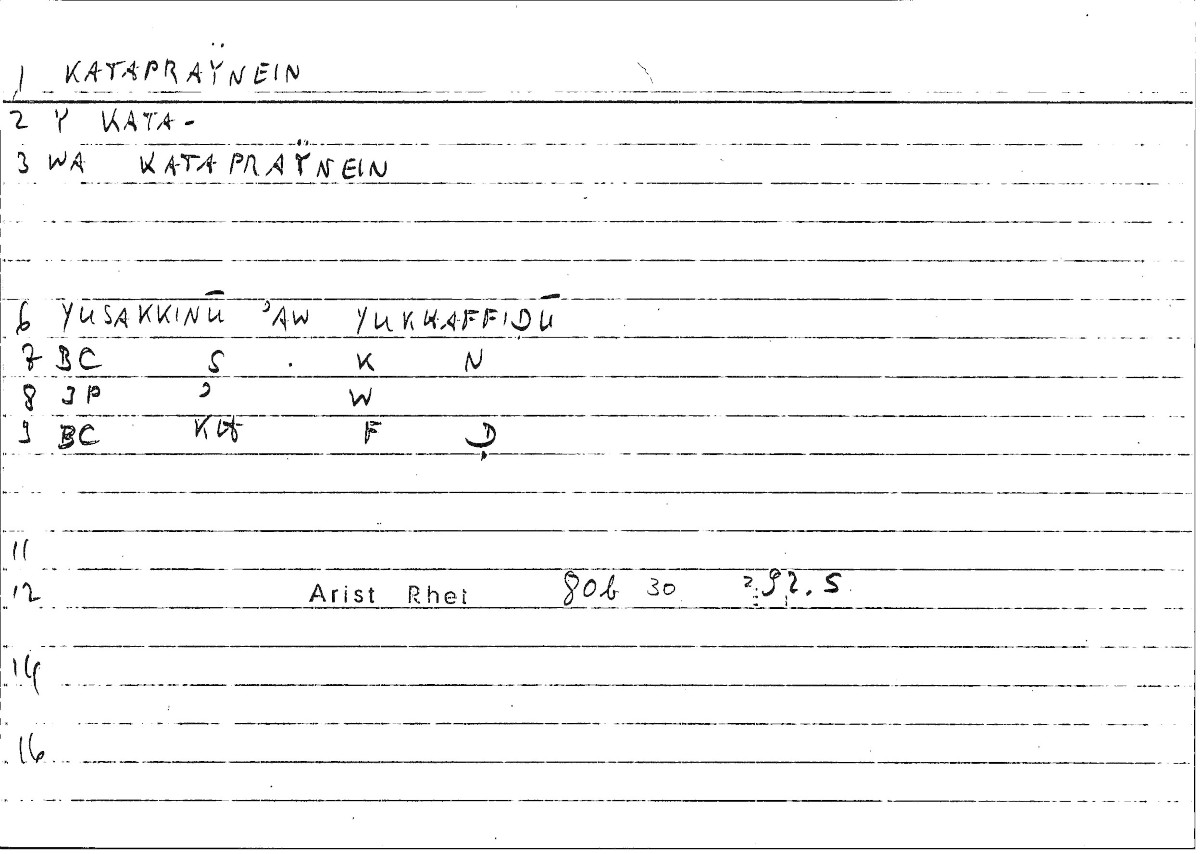 1 KATAPRAŸNEIN
2 Y KATA-
3 WA KATAPRAŸNEIN
6 YUSAKKINŪ ʾAW YUKHAFFIḌŪ
7 BC S . K N
8 JP ʾ W
9 BC KH F Ḍ
11
12 Arist Rhet 80b 30 92.5
14
16